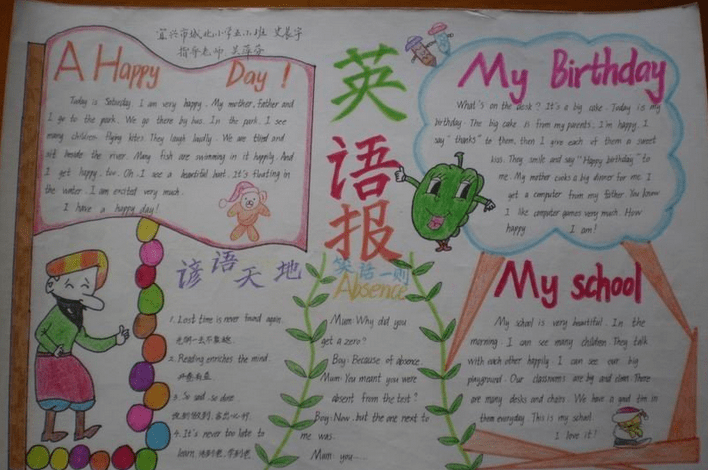 宜兴市城北小学五
指导老师
A Happy Day!
Today is Saturday. I am very happy. My mother, father and
I go to the park. We go there by bus. In the park, I see
many children flying kites. They laugh loudly. We are tired and
sit beside the river. Many fish are swimming in it happily. And
I get happy, too. Oh. I see a beautiful boat. It's floating in
the water. I am excited very much.
I have a happy day!
英语报
My Birthday
What's on the desk? It's a big cake. Today is my
birthday. The big cake is from my parents, I'm happy. I
say "thanks" to them, then I give each of them a sweet
kiss. They smile and say "Happy birthday" to
me. My mother cooks a big dinner for me. I
get a computer from my father. You know
I like computer games very much. How
happy I am!
谚语天地
1. Lost time is never found again.
2. Reading enriches the mind.
开卷有益
3. So said, so done
说到做到
4. It's never too late to
learn. 活到老,学到老
笑话一则
Absence
Mum: Why did you
get a zero?
Boy: Because of absence.
Mum: You meant you were
absent from the test?
Boy: Now. but the one next to
me was.
Mum: you....
My school
My school is very beautiful. In the
morning, I can see many children. They talk
with each other happily. I can see our big
playground. Our classrooms are big and clean. There
are many desks and chairs. We have a good time in
them everyday. This is my school.
I love it!